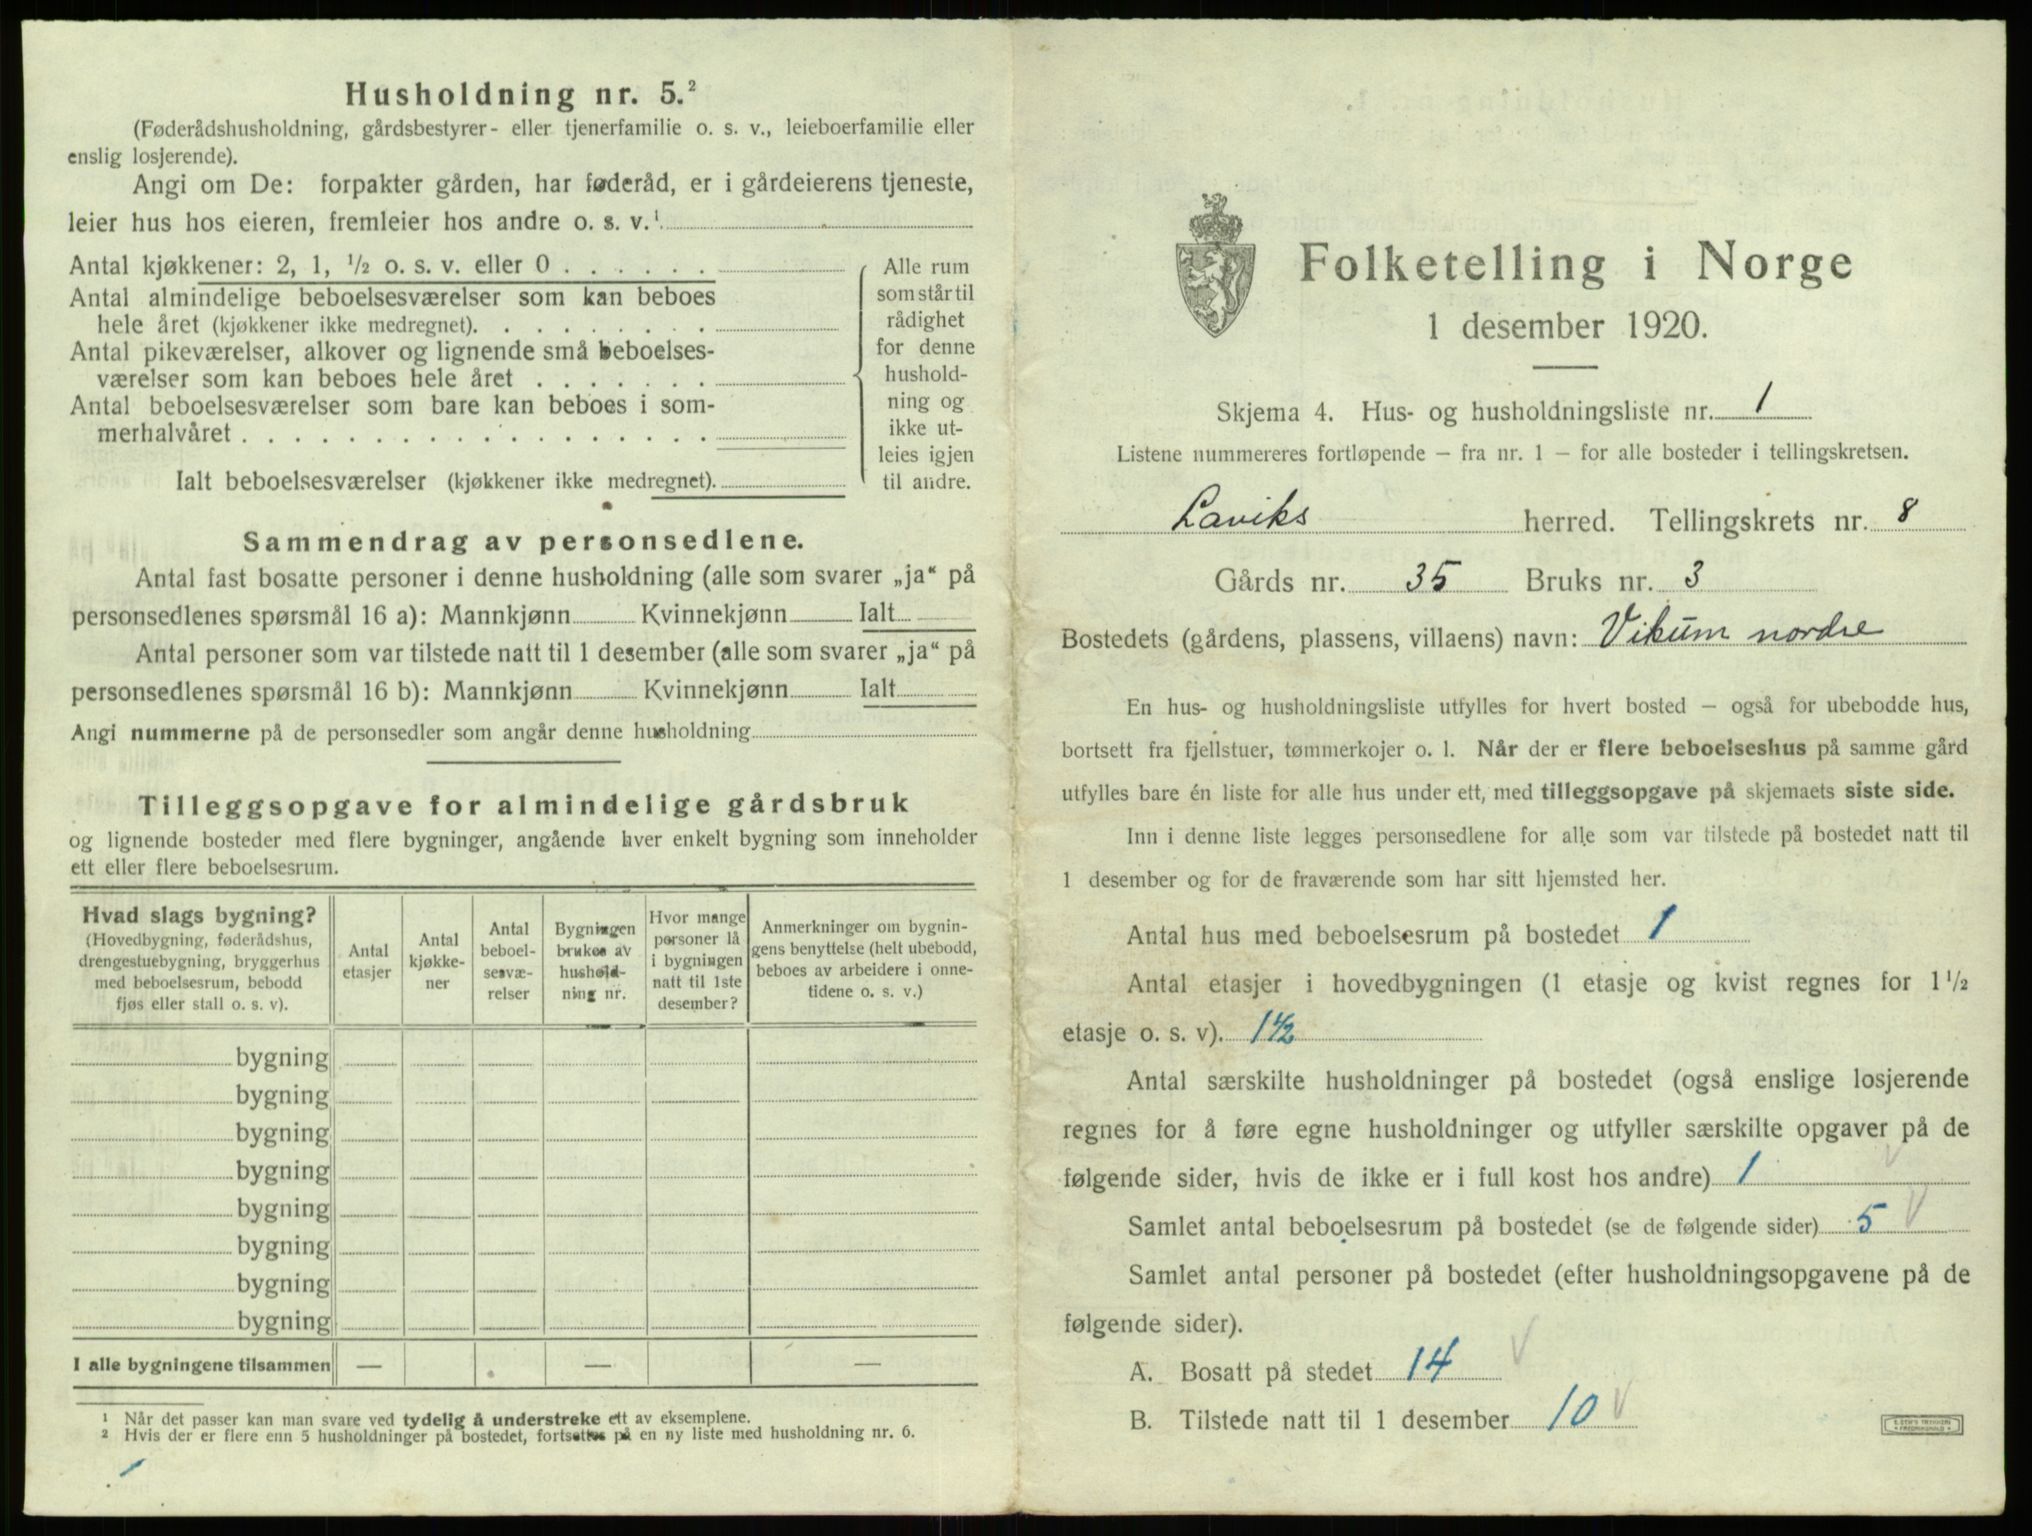 Husholdning nr. 5.²
(Føderådshusholdning, gårdsbestyrer- eller tjenerfamilie o. s. v., leieboerfamilie eller
enslig losjerende).
Angi om De: forpakter gården, har føderåd, er i gårdeierens tjeneste,
leier hus hos eieren, fremleier hos andre o. s. v.¹
Antal kjøkkener: 2, 1, ½ o. s. v. eller 0 . . . . . .
Antal almindelige beboelsesværelser som kan beboes
hele året (kjøkkener ikke medregnet). . . . . . . . .
Antal pikeværelser, alkover og lignende små beboelses-
værelser som kan beboes hele året . . . . . . .
Antal beboelsesværelser som bare kan beboes i som-
merhalvåret . . . . . . . . . . . . . . . . . .
Ialt beboelsesværelser (kjøkkener ikke medregnet).
Alle rum
som står til
rådighet
for denne
hushold-
ning og
ikke ut-
leies igjen
til andre.
Sammendrag av personsedlene.
Antal fast bosatte personer i denne husholdning (alle som svarer „ja“ på
personsedlenes spørsmål 16 a): Mannkjønn Kvinnekjønn Ialt
Antal personer som var tilstede natt til 1 desember (alle som svarer „ja“ på
personsedlenes spørsmål 16 b): Mannkjønn Kvinnekjønn Ialt
Angi nummerne på de personsedler som angår denne husholdning
Tilleggsopgave for almindelige gårdsbruk
og lignende bosteder med flere bygninger, angående hver enkelt bygning som inneholder
ett eller flere beboelsesrum.
Hvad slags bygning?
(Hovedbygning, føderådshus,
drengestuebygning, bryggerhus
med beboelsesrum, bebodd
fjøs eller stall o. s. v).
Antal
etasjer
Antal
kjøkke-
ner
Antal
beboel-
sesvæ-
relser
Bygningen
brukes av
hushold-
ning nr.
Hvor mange
personer lå
i bygningen
natt til 1ste
desember?
Anmerkninger om bygnin-
gens benyttelse (helt ubebodd,
beboes av arbeidere i onne-
tidene o. s. v.)
bygning
bygning
bygning
bygning
bygning
bygning
bygning
bygning
I alle bygningene tilsammen — — —
¹ Når det passer kan man svare ved tydelig å understreke ett av eksemplene.
² Hvis der er flere enn 5 husholdninger på bostedet, fortsettes på en ny liste med husholdning nr. 6.
1
Folketelling i Norge
1 desember 1920.
Skjema 4. Hus- og husholdningsliste nr. 1
Listene nummereres fortløpende — fra nr. 1 — for alle bosteder i tellingskretsen.
Laviks herred. Tellingskrets nr. 8
Gårds nr. 35 Bruks nr. 3
Bostedets (gårdens, plassens, villaens) navn: Vikum nordre
En hus- og husholdningsliste utfylles for hvert bosted — også for ubebodde hus,
bortsett fra fjellstuer, tømmerkojer o. l. Når der er flere beboelseshus på samme gård
utfylles bare én liste for alle hus under ett, med tilleggsopgave på skjemaets siste side.
Inn i denne liste legges personsedlene for alle som var tilstede på bostedet natt til
1 desember og for de fraværende som har sitt hjemsted her.
Antal hus med beboelsesrum på bostedet 1
Antal etasjer i hovedbygningen (1 etasje og kvist regnes for 1½
etasje o. s. v). 1½
Antal særskilte husholdninger på bostedet (også enslige losjerende
regnes for å føre egne husholdninger og utfyller særskilte opgaver på de
følgende sider, hvis de ikke er i full kost hos andre) 1
Samlet antal beboelsesrum på bostedet (se de følgende sider) 5
Samlet antal personer på bostedet (efter husholdningsopgavene på de
følgende sider).
A. Bosatt på stedet 14
B. Tilstede natt til 1 desember 10